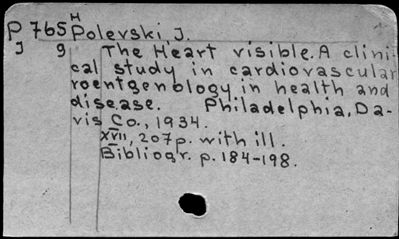 H
P 765 Polevski J.
J 9 The Heart visible. A clini-
cal study in cardiovascular
roentgenology in health and
disease. Philadelphia, Da-
vis Co., 1934.
XVII, 207 p. with ill.
Bibliogr. p. 184-198.